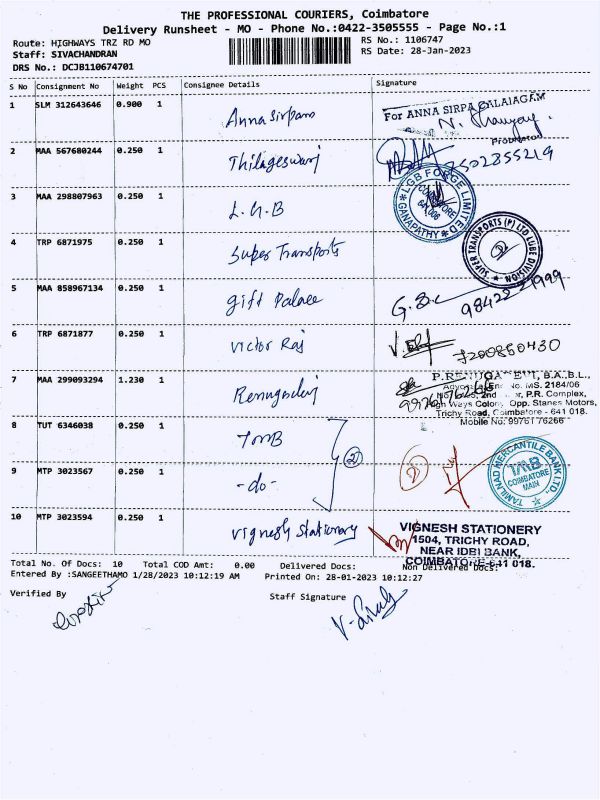 THE PROFESSIONAL COURIERS, Coimbatore
Delivery Runsheet - MO - Phone No.:0422-3505555 - Page No.:1
Route: HIGHWAYS TRZ RD MO
RS No.: 1106747
Staff: SIVACHANDRAN
RS Date: 28-Jan-2023
DRS No.: DCJB110674701
S No Consignment No Weight PCS Consignee Details Signature
1 SLM 312643646 0.900 1 Anna Sirpam
For ANNA SIRPA KALAIAGAM
Proprietor
2 MAA 567680244 0.250 1 Thilageswari 7502855219
3 MAA 298807963 0.250 1 L.G.B
LGB FORGE LIMITED
COIMBATORE
641 006
GANAPATHY
4 TRP 6871975 0.250 1 Super Transports
SUPER TRANSPORTS (P) LTD LUBE DIVISION
5 MAA 858967134 0.250 1 gift Palace
6 TRP 6871877 0.250 1 Victor Raj 7200860430
7 MAA 299093294 1.230 1 Renugadevi
P.RENUGA DEVI, B.A.,B.L.,
MS. 2184/06
P.R. Complex,
Opp. Stanes Motors,
Trichy Road, Coimbatore - 641 018.
Mobile No: 99761 76266
8 TUT 6346038 0.250 1 TMB
9 MTP 3023567 0.250 1 -do- 2
2
TAMILNAD MERCANTILE BANK LTD.,
TMB
COIMBATORE
MAIN
10 MTP 3023594 0.250 1 Vignesh Stationery
VIGNESH STATIONERY
1504, TRICHY ROAD,
NEAR IDBI BANK,
COIMBATORE-641 018.
Total No. Of Docs: 10 Total COD Amt: 0.00 Delivered Docs: Non Delivered Docs:
Entered By :SANGEETHAMO 1/28/2023 10:12:19 AM Printed On: 28-01-2023 10:12:27
Verified By
Staff Signature